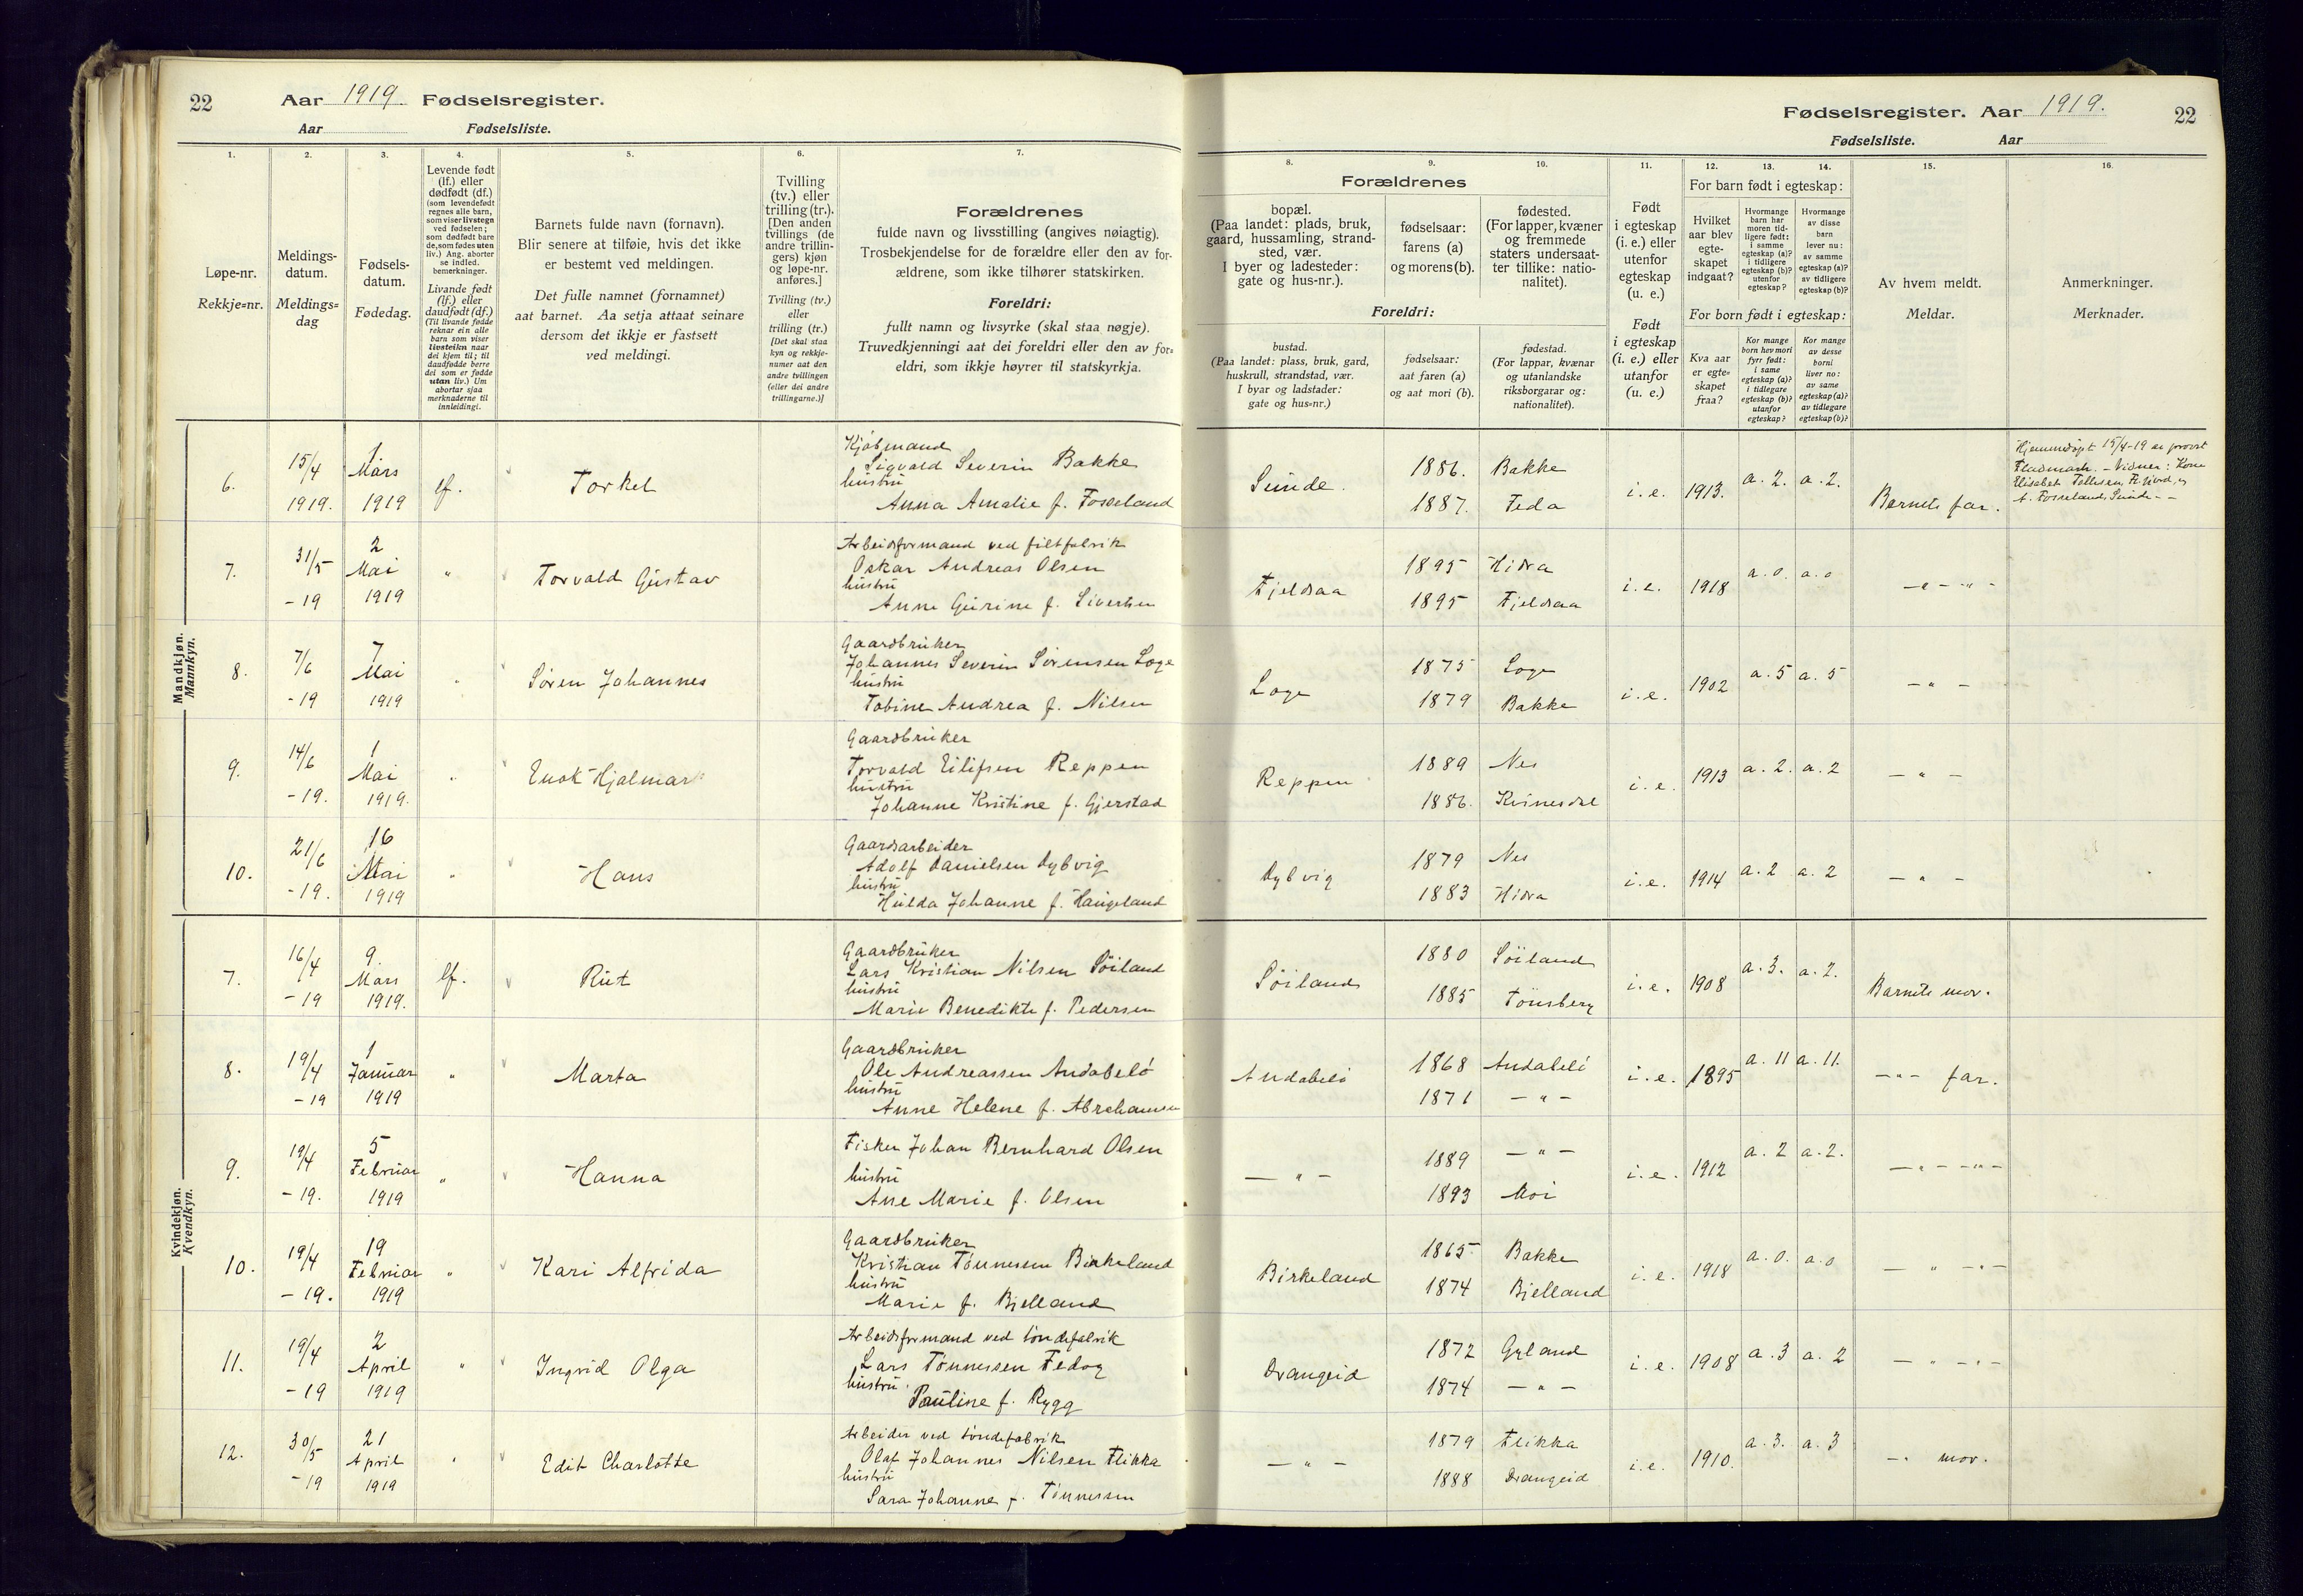 22 Aar 1919. Fødselsregister.
Aar Fødselsliste.
Fødselsregister. Aar 1919. 22
Fødselsliste. Aar
1. 2. 3. 4. 5. 6. 7.
Løpe-nr.
Rekkje=nr.
Meldings-
datum.
Meldings=
dag
Fødsels-
datum.
Fødedag.
Levende født
(lf.) eller
dødfødt (df.)
(som levendefødt
regnes alle barn,
som viser livstegn
ved fødselen;
som dødfødt bare
de, som fødes uten
liv.) Ang. aborter
se indled.
bemerkninger.
Livande født
(lf.) eller
daudfødt (df.)
(Til livande fødde
reknar ein alle
barn som viser
livsteikn naar
dei kjem til; til
daudfødde berre
dei som er fødde
utan liv.) Um
abortar sjaa
merknaderne til
innleidingi.
Barnets fulde navn (fornavn).
Blir senere at tilføie, hvis det ikke
er bestemt ved meldingen.
Det fulle namnet (fornamnet)
aat barnet. Aa setja attaat seinare
dersom det ikkje er fastsett
ved meldingi.
Tvilling
(tv.) eller
trilling (tr.).
[Den anden
tvillings (de
andre trillin-
gers) kjøn
og løpe-nr.
anføres.]
Tvilling (tv.)
eller
trilling (tr.)
[Det skal staa
kyn og rekkje-
numer aat den
andre tvillingen
(eller dei andre
trillingarne.)]
Forældrenes
fulde navn og livsstilling (angives nøiagtig).
Trosbekjendelse for de forældre eller den av for-
ældrene, som ikke tilhører statskirken.
Foreldri:
fullt namn og livsyrke (skal staa nøgje).
Truvedkjenningi aat dei foreldri eller den av for=
eldri, som ikkje høyrer til statskyrkja.
8. 9. 10. 11. 12. 13. 14. 15. 16.
Forældrenes
bopæl.
(Paa landet: plads, bruk,
gaard, hussamling, strand-
sted, vær.
I byer og ladesteder:
gate og hus-nr.).
fødselsaar:
farens (a)
og morens (b).
fødested.
(For lapper, kvæner
og fremmede
staters undersaat-
ter tillike: natio-
nalitet).
Foreldri:
bustad.
(Paa landet: plass, bruk, gard,
huskrull, strandstad, vær.
I byar og ladstader:
gate og hus=nr.)
fødselsaar:
aat faren (a)
og aat mori (b).
fødestad.
(For lappar, kvænar
og utanlandske
riksborgarar og:
nationalitet).
Født
i egteskap
(i. e.) eller
utenfor
egteskap
(u. e.)
Født
i egteskap
(i. e.) eller
utanfor
(u. e.)
For barn født i egteskap:
Hvilket
aar blev
egte-
skapet
indgaat?
Hvormange
barn har
moren tid-
ligere født:
i samme
egteskap (a)?
i tidligere
egteskap (b)?
utenfor
egteskap?
Hvormange
av disse
barn
lever nu:
av samme
egteskap (a)?
av tidligere
egteskap (b)?
For born født i egteskap:
Kva aar
er egte=
skapet
fraa?
Kor mange
born hev mori
fyrr født:
i same
egteskap (a)?
i tidlegare
egteskap (b)?
utanfor
egteskap?
Kor mange
av desse
borni
liver no:
av same
egteskap (a)?
av tidlegare
egteskap (b)?
Av hvem meldt.
Meldar.
Anmerkninger.
Merknader.
Mandkjøn.
Mannkyn.
6. 15/4 1919. 1 Mars 1919 lf. Torkel
Kjøbmand
Sigvald Severin Bakke
hustru
Anna Amalie f. Fosseland
Sunde. 1886. Bakke 1887. Feda i. e. 1913. a. 2. a. 2. Barnets far.
Hjemmedøpt 15/4-19 av provst
Fladmark. - Vidner: Kone
Elisabet Tollefsen,
A. Fosseland, Sunde - -
7. 31/5 -19 2 Mai 1919 " Torvald Gustav
Arbeidsformand ved filtfabrik
Oskar Andreas Olsen
hustru
Anne Gurine f. Sivertsen
Fjeldsaa 1895 Hidra 1895 Fjeldsaa i. e. 1918 a. 0. a. 0 - " - " -
8. 7/6 -19 7 Mai 1919 " Søren Johannes
Gaardbruker
Johannes Severin Sørensen Loge
hustru
Tobine Andrea f. Nilsen
Loge 1875 Loge 1879 Bakke i. e. 1902 a. 5 a. 5 - " -
9. 14/6 -19. 1 Mai 1919. " Enok Hjalmar
Gaardbruker
Torvald Eilifsen Reppen
hustru
Johanne Kristine f. Gjerstad
Reppen 1889 Nes 1886. Kvinesdal i. e. 1913 a. 2. a. 2 - " -
10. 21/6 -19. 16 Mai 1919 " Hans
Gaardsarbeider
Adolf Danielsen Dybvig
hustru
Hulda Johanne f. Haugeland
Dybvig 1879 Nes 1883 Hidra i. e. 1914 a. 2 a. 2 - " -
Kvindekjøn.
Kvendkyn.
7. 16/4 -19 9 Mars 1919. lf. Rut
Gaardbruker
Lars Kristian Nilsen Søiland
hustru
Marie Benedikte f. Pedersen
Søiland 1880 Søiland 1885 Tønsberg i. e. 1908 a. 3. a. 2. Barnets mor.
8. 19/4 -19 1 Januar 1919 " Marta
Gaardbruker
Ole Andreassen Andabelø
hustru
Anne Helene f. Abrahamsen
Andabelø 1868 Andabelø 1871 - " - i. e. 1895 a. 11 a. 11. - " - far.
9. 19/4 -19. 5 Februar 1919 " Hanna
Fisker Johan Bernhard Olsen
hustru
Ane Marie f. Olsen
- " - 1889 - " - 1893 Moi i. e. 1912 a. 2 a. 2. - " - - " -
10. 19/4 -19. 19 Februar 1919 " Kari Alfrida
Gaardbruker
Kristian Tønnesen Birkeland
hustru
Marie f. Bjelland
Birkeland 1865 Bakke 1874 Bjelland i. e. 1918 a. 0. a. 0 - " - " -
11. 19/4 -19 2 April 1919 " Ingrid Olga
Arbeidsformand ved tøndefabrik
Lars Tønnessen Fedog
hustru
Pauline f. Rygg
Drangeid 1872 Gyland 1874 - " - i. e. 1908 a. 3 a. 2 - " - " -
12. 30/5 -19 21 April 1919 " Edit Charlotte
Arbeider ved tøndefabrik
Olaf Johannes Nilsen Flikka
hustru
Sara Johanne f. Tønnessen
- " - 1879 Flikka 1888 Drangeid i. e. 1910. a. 3. a. 3 - " mor.